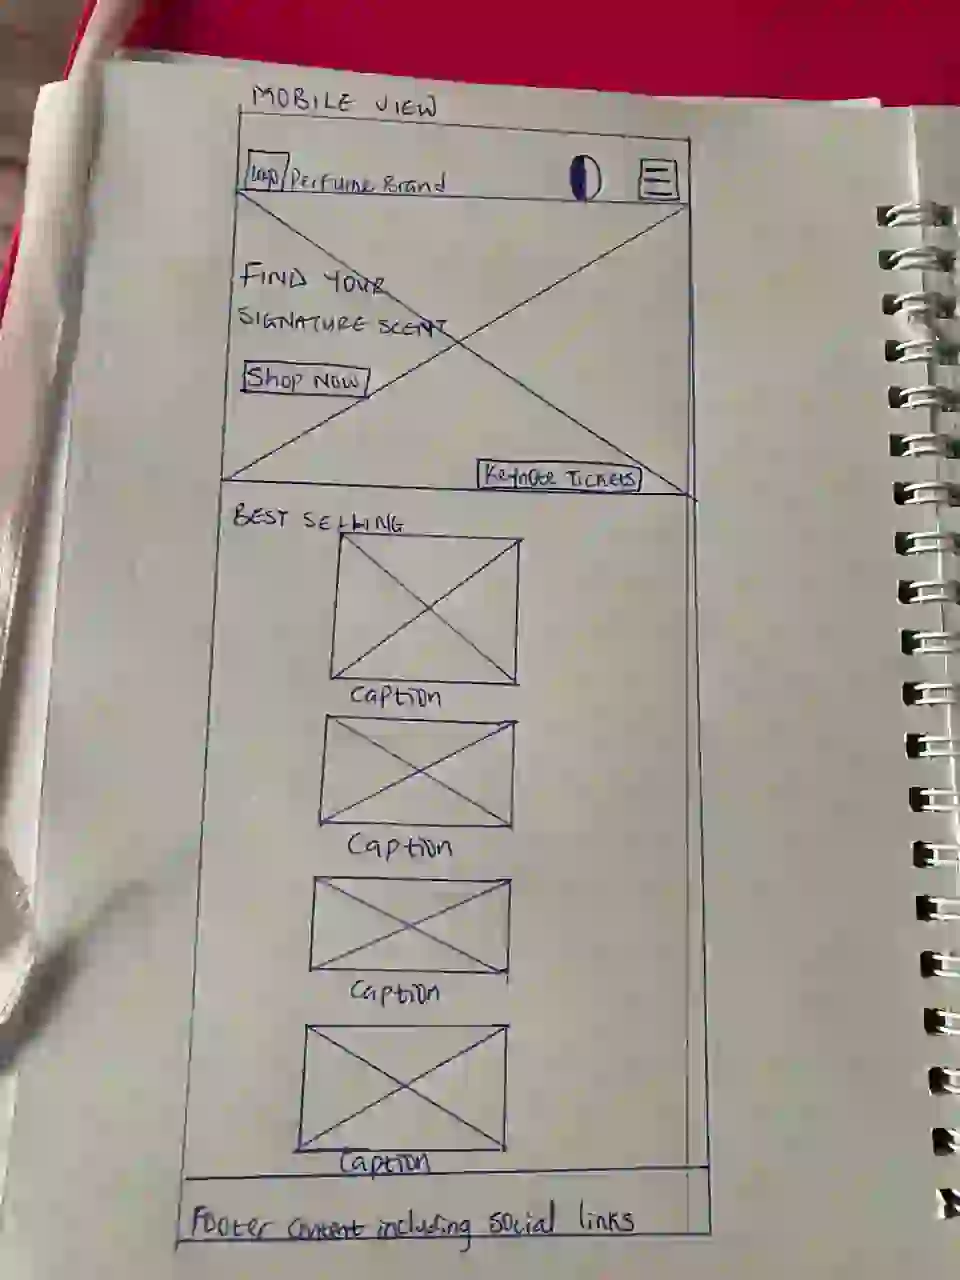 MOBILE VIEW
Logo Perfume Brand
FIND YOUR
SIGNATURE SCENT
Shop NOW
Keynote TICKETS
BEST SELLING
Caption
Caption
Caption
Caption
Footer content including social links